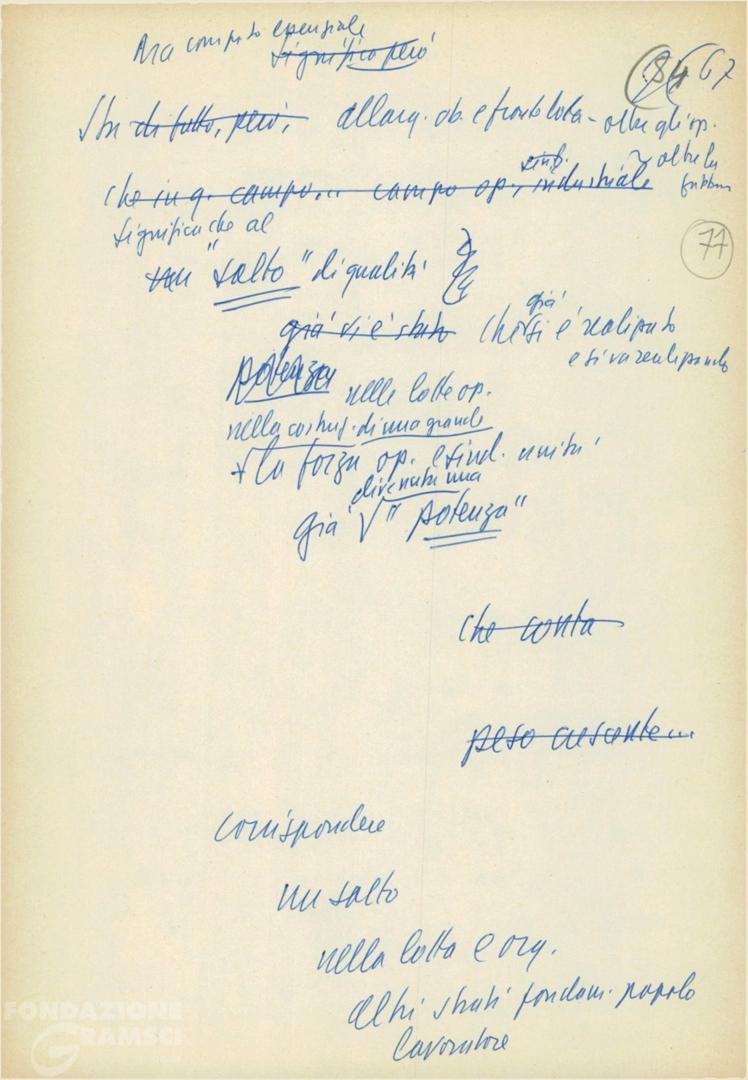 Ma compito essenziale
significa però
84 67
di tutto, però, allarg. ob. e fronte lotta - oltre gli op.
oltre la
fabbrica
sind.
che in q. campo... campo op., industriale
significa che al
77
un "salto" di qualità
già
già vi è stato che si è realizzato
e si va realizzando
potenza nelle lotte op.
nella costruz. di una grande
+ la forza op. e sind. unità
divenuta una
già "potenza"
che conta
peso crescente...
corrispondere
un salto
nella lotta e org.
altri strati fondam. popolo
lavoratore
FONDAZIONE
GRAMSCI